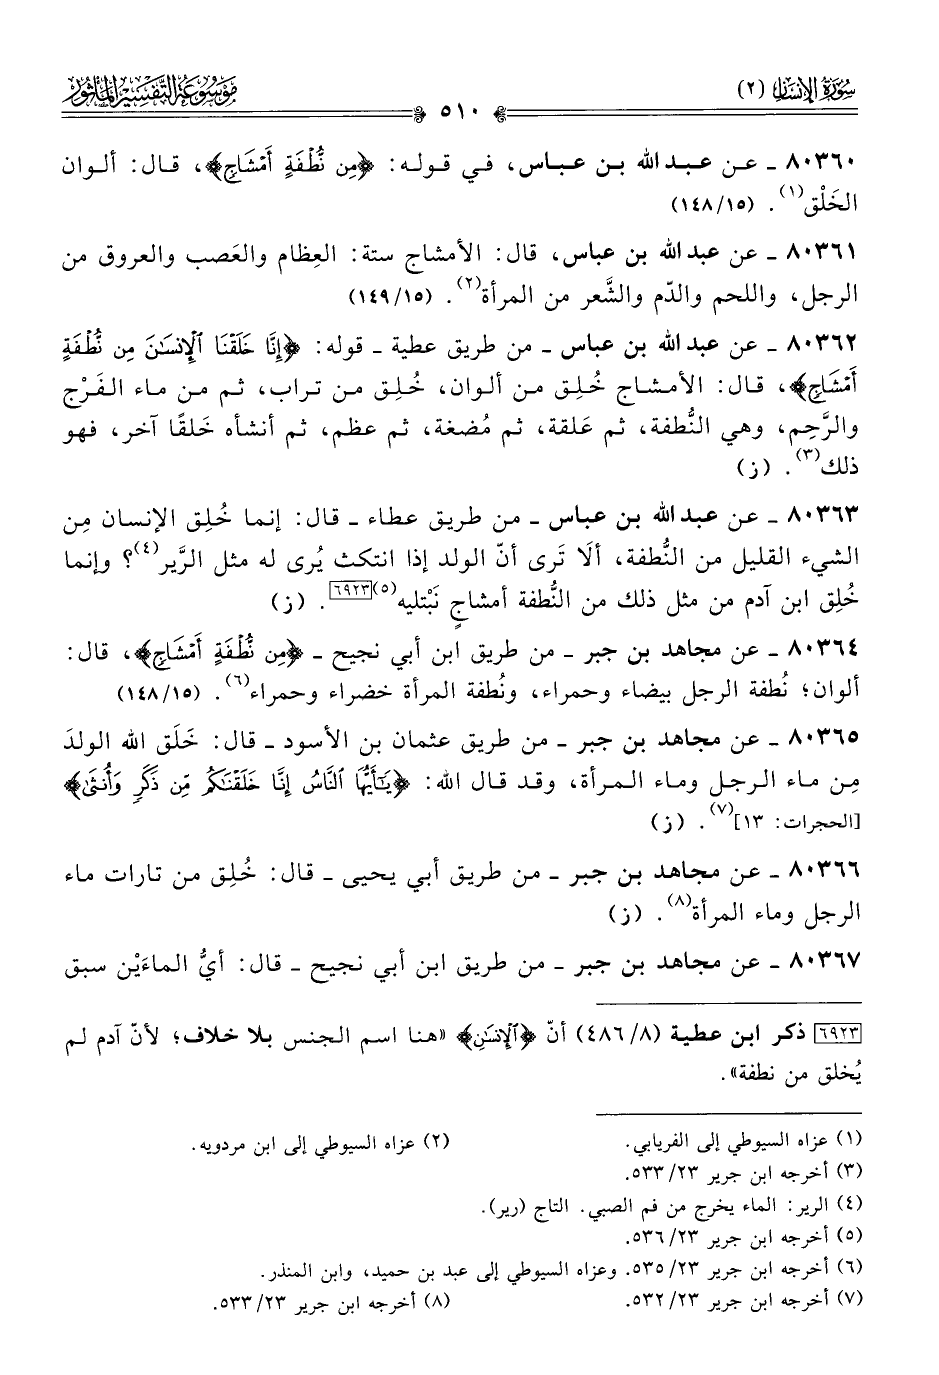 سُورَةُ الإِنسَانِ (٢)
٥١٠
مَوْسُوعَةُ التَّفْسِيرِ المَأْثُورِ
٨٠٣٦٠ ـ عن عبد الله بن عباس، في قوله: ﴿مِن نُّطْفَةٍ أَمْشَاجٍ﴾، قال: ألوان
الخَلْق(١). (١٥/١٤٨)
٨٠٣٦١ ـ عن عبد الله بن عباس، قال: الأمشاج ستة: العِظام والعَصب والعروق من
الرجل، واللحم والدّم والشَّعر من المرأة(٢). (١٥/١٤٩)
٨٠٣٦٢ ـ عن عبد الله بن عباس ـ من طريق عطية ـ قوله: ﴿إِنَّا خَلَقْنَا ٱلْإِنسَٰنَ مِن نُّطْفَةٍ
أَمْشَاجٍ﴾، قال: الأمشاج خُلِق من ألوان، خُلِق من تراب، ثم من ماء الفَرْج
والرَّحِم، وهي النُّطفة، ثم عَلقة، ثم مُضغة، ثم عظم، ثم أنشأه خَلقًا آخر، فهو
ذلك(٣). (ز)
٨٠٣٦٣ ـ عن عبد الله بن عباس ـ من طريق عطاء ـ قال: إنما خُلِق الإنسان مِن
الشيء القليل من النُّطفة، ألَا تَرى أنّ الولد إذا انتكث يُرى له مثل الرَّير(٤)؟ وإنما
خُلِق ابن آدم من مثل ذلك من النُّطفة أمشاجٍ نَبْتليه(٥)[٦٩٢٣]. (ز)
٨٠٣٦٤ ـ عن مجاهد بن جبر ـ من طريق ابن أبي نجيح ـ ﴿مِن نُّطْفَةٍ أَمْشَاجٍ﴾، قال:
ألوان؛ نُطفة الرجل بيضاء وحمراء، ونُطفة المرأة خضراء وحمراء(٦). (١٥/١٤٨)
٨٠٣٦٥ ـ عن مجاهد بن جبر ـ من طريق عثمان بن الأسود ـ قال: خَلَق الله الولدَ
مِن ماء الرجل وماء المرأة، وقد قال الله: ﴿يَٰٓأَيُّهَا ٱلنَّاسُ إِنَّا خَلَقْنَٰكُم مِّن ذَكَرٍ وَأُنثَىٰ﴾
[الحجرات: ١٣](٧). (ز)
٨٠٣٦٦ ـ عن مجاهد بن جبر ـ من طريق أبي يحيى ـ قال: خُلِق من تارات ماء
الرجل وماء المرأة(٨). (ز)
٨٠٣٦٧ ـ عن مجاهد بن جبر ـ من طريق ابن أبي نجيح ـ قال: أيُّ الماءَيْن سبق
[٦٩٢٣] ذكر ابن عطية (٨/٤٨٦) أنّ ﴿ٱلْإِنسَٰنَ﴾ «هنا اسم الجنس بلا خلاف؛ لأنّ آدم لم
يُخلق من نطفة».
(١) عزاه السيوطي إلى الفريابي. (٢) عزاه السيوطي إلى ابن مردويه.
(٣) أخرجه ابن جرير ٢٣/٥٣٣.
(٤) الرير: الماء يخرج من فم الصبي. التاج (رير).
(٥) أخرجه ابن جرير ٢٣/٥٣٦.
(٦) أخرجه ابن جرير ٢٣/٥٣٥. وعزاه السيوطي إلى عبد بن حميد، وابن المنذر.
(٧) أخرجه ابن جرير ٢٣/٥٣٢. (٨) أخرجه ابن جرير ٢٣/٥٣٣.